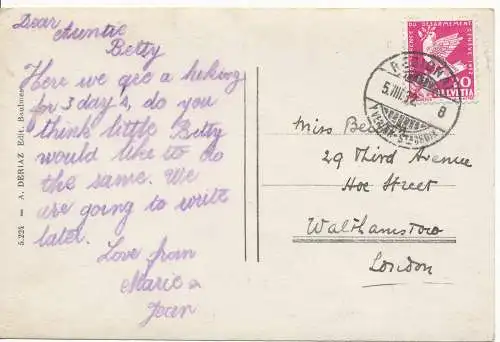 Dear
Auntie
Betty
Here we go a hiking
for 3 day's, do you
think little Betty
would like to do
the same. We
are going to write
later.
Love from
Marie &
Jean
5.224 — A. DERIAZ Edit. Baulmes
DU DESARMEMENT GENEVE
20
HELVETIA
5.III.32
8
YVERDON-STE-CROIX
Miss
29 Third Avenue
Hoe Street
Walthamstow
London